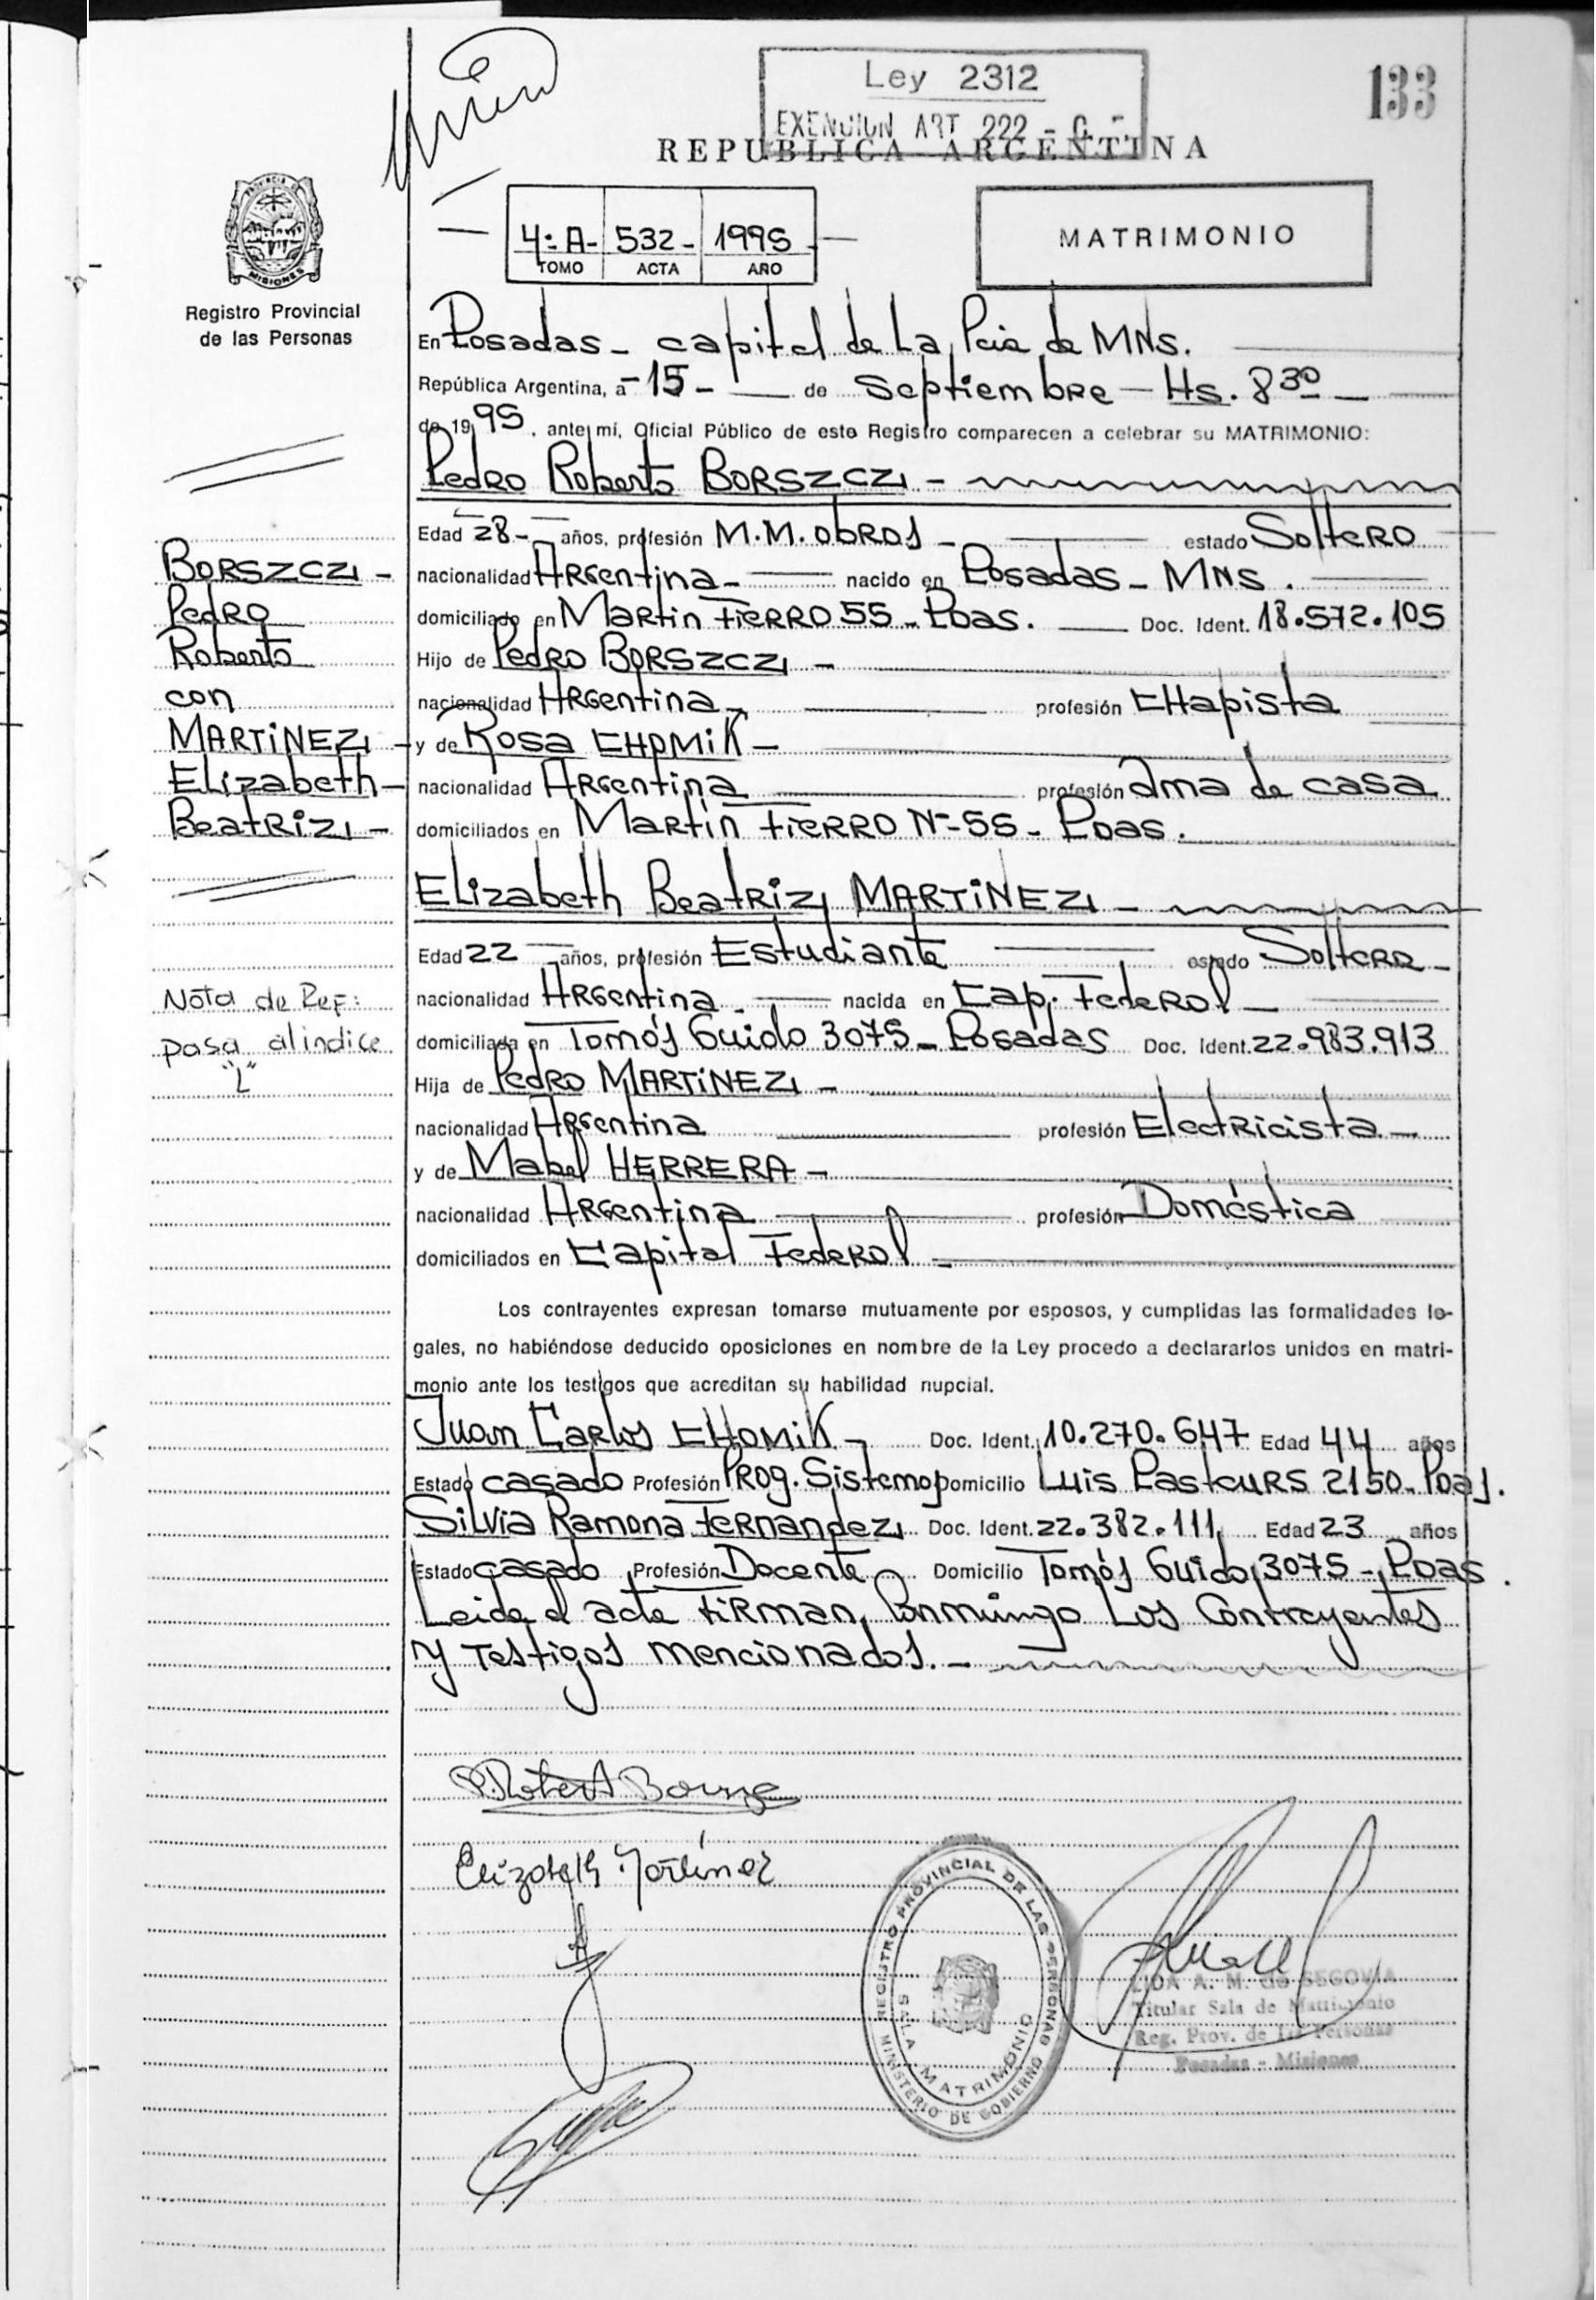 Ley 2312
EXENCION ART 222 - C.-
133
REPUBLICA ARGENTINA
4º A- 532- 1995
TOMO ACTA AÑO
MATRIMONIO
PROVINCIA DE MISIONES
Registro Provincial
de las Personas
En Posadas - capital de La Pcia de MNs.
República Argentina, a -15- de Septiembre - Hs. 8 30
de 19 95, ante mí, Oficial Público de este Registro comparecen a celebrar su MATRIMONIO:
Pedro Roberto BORSZCZ -
Edad 28- años, profesión M.M. obras - estado Soltero
nacionalidad Argentina - nacido en Posadas - MNS.
domiciliado en Martin Fierro 55 - Pdas. Doc. Ident. 18.572.105
Hijo de Pedro BORSZCZ -
nacionalidad Argentina - profesión CHapista
y de Rosa CHOMIK -
nacionalidad Argentina profesión ama de casa
domiciliados en Martin Fierro Nº 55 - Pdas.
Elizabeth Beatriz MARTINEZ -
Edad 22 años, profesión Estudiante estado Soltera -
nacionalidad Argentina - nacida en Cap. Federal -
domiciliada en Tomás Guido 3075 - Posadas Doc. Ident. 22.983.913
Hija de Pedro MARTINEZ -
nacionalidad Argentina profesión Electricista -
y de Mabel HERRERA -
nacionalidad Argentina profesión Doméstica
domiciliados en Capital Federal -
Los contrayentes expresan tomarse mutuamente por esposos, y cumplidas las formalidades le-
gales, no habiéndose deducido oposiciones en nombre de la Ley procedo a declararlos unidos en matri-
monio ante los testigos que acreditan su habilidad nupcial.
Juan Carlos CHOMIK - Doc. Ident. 10.270.647 Edad 44 años
Estado casado Profesión Prog. Sistemas Domicilio Luis Pasteurs 2150 - Pdas.
Silvia Ramona Fernandez Doc. Ident. 22.382.111 Edad 23 años
Estado casado Profesión Docente Domicilio Tomás Guido 3075 - Pdas.
Leida el acta firman conmigo Los Contrayentes
y Testigos mencionados. -
BORSZCZ -
Pedro
Roberto
con
MARTINEZ -
Elizabeth -
Beatriz -
Nota de Ref:
pasa al indice
"L"
Elizabeth Martinez
REGISTRO PROVINCIAL DE LAS PERSONAS
SALA MATRIMONIO
MINISTERIO DE GOBIERNO
LIDA A. M. de SEGOVIA
Titular Sala de Matrimonio
Reg. Prov. de las Personas
Posadas - Misiones